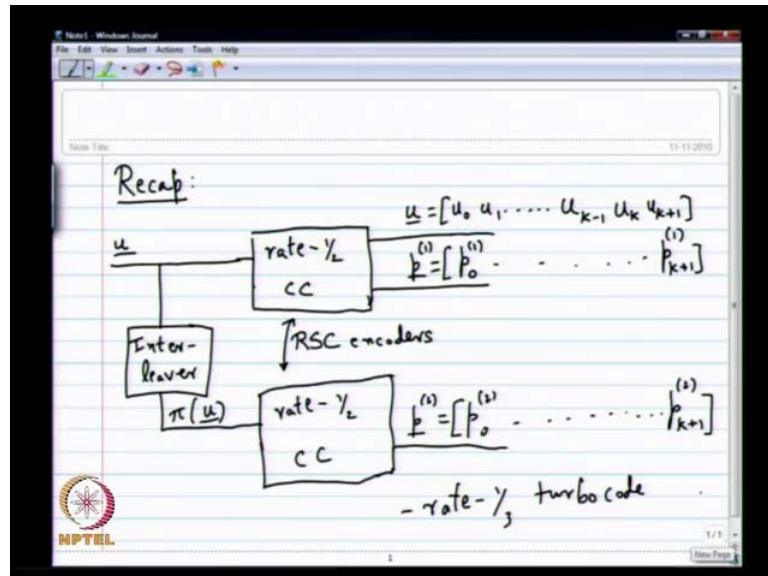 Note1 - Windows Journal
File Edit View Insert Actions Tools Help
Note Title
11-11-2010
Recap:
u = [u₀ u₁ ..... u_{k-1} u_k u_{k+1}]
u
rate-½
CC
p^{(1)} = [p₀^{(1)} . . . . . . p_{k+1}^{(1)}]
RSC encoders
Inter-
leaver
π(u)
rate-½
CC
p^{(2)} = [p₀^{(2)} . . . . . . p_{k+1}^{(2)}]
- rate-⅓ turbo code
NPTEL
1/1
1
New Page